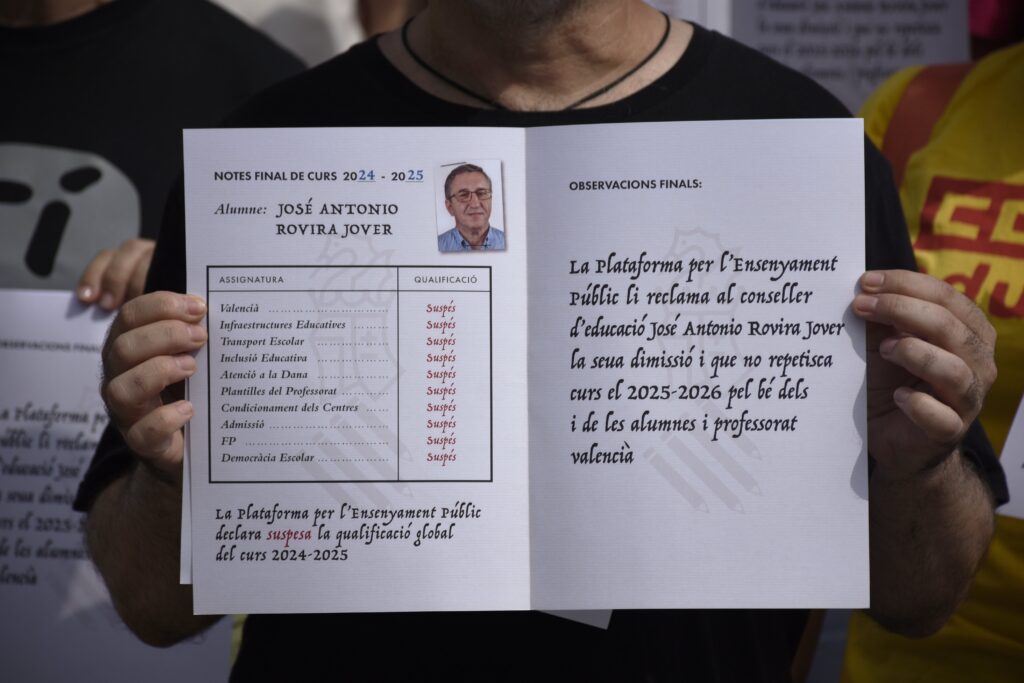 NOTES FINAL DE CURS 2024 - 2025
Alumne: JOSÉ ANTONIO
ROVIRA JOVER
ASSIGNATURA QUALIFICACIÓ
Valencià ........................ Suspés
Infraestructures Educatives ......... Suspés
Transport Escolar ................... Suspés
Inclusió Educativa .................. Suspés
Atenció a la Dana .................. Suspés
Plantilles del Professorat ........... Suspés
Condicionament dels Centres ...... Suspés
Admissió ............................ Suspés
FP .................................. Suspés
Democràcia Escolar .................. Suspés
La Plataforma per l'Ensenyament Públic
declara suspesa la qualificació global
del curs 2024-2025
OBSERVACIONS FINALS:
La Plataforma per l'Ensenyament
Públic li reclama al conseller
d'educació José Antonio Rovira Jover
la seua dimissió i que no repetisca
curs el 2025-2026 pel bé dels
i de les alumnes i professorat
valencià
OBSERVACIONS FINALS: